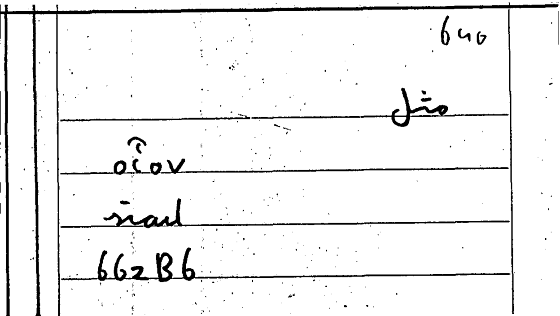 640
مثل
οἷον
662B6